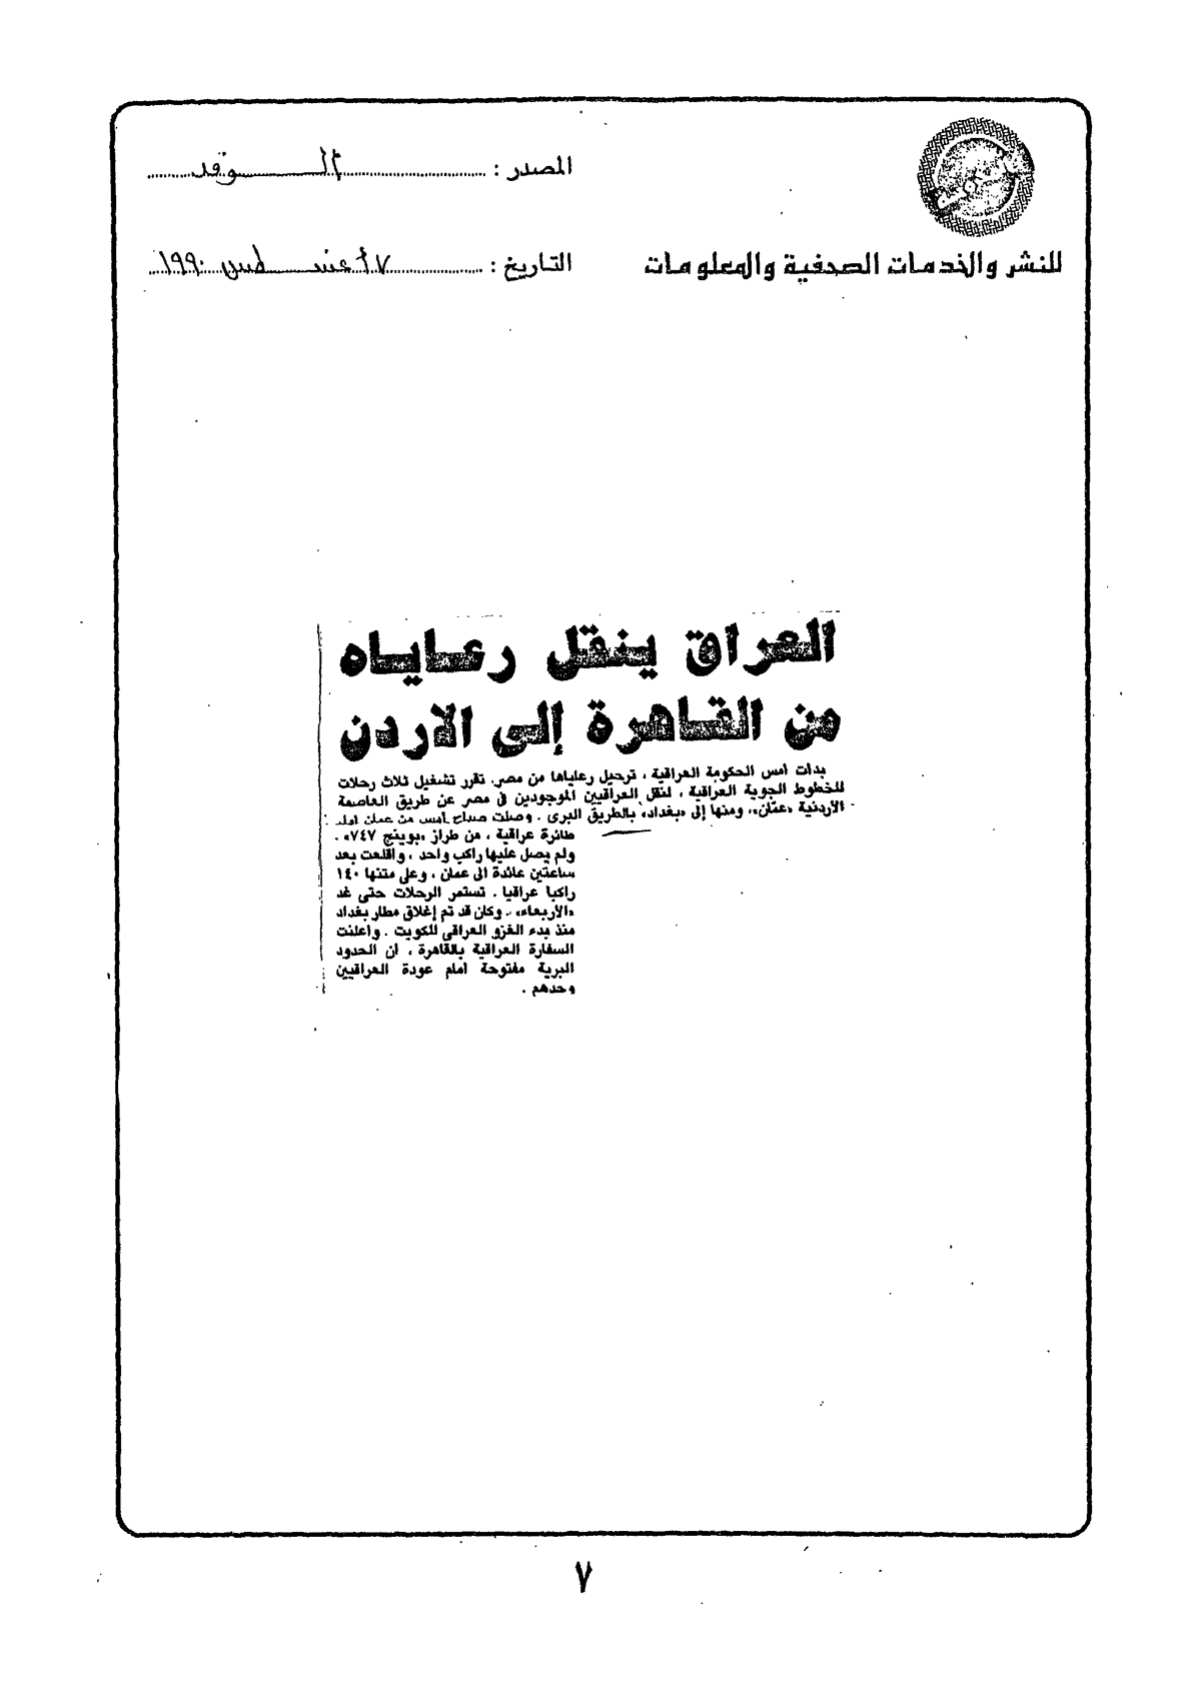 المصدر : الوفد
للنشر والخدمات الصحفية والمعلومات
التاريخ : ٧ أغسطس ١٩٩٠
العراق ينقل رعاياه
من القاهرة إلى الاردن
بدات امس الحكومة العراقية ، ترحيل رعاياها من مصر. تقرر تشغيل ثلاث رحلات
للخطوط الجوية العراقية ، لنقل العراقيين الموجودين في مصر عن طريق العاصمة
الأردنية «عمّان»، ومنها إلى «بغداد» بالطريق البرى . وصلت صباح أمس من عمان اول
طائرة عراقية ، من طراز «بوينج ٧٤٧» .
ولم يصل عليها راكب واحد ، واقلعت بعد
ساعتين عائدة الى عمان ، وعلى متنها ١٤٠
راكبا عراقيا . تستمر الرحلات حتى غد
«الأربعاء» . وكان قد تم إغلاق مطار بغداد
منذ بدء الغزو العراقى للكويت . واعلنت
السفارة العراقية بالقاهرة ، ان الحدود
البرية مفتوحة امام عودة العراقيين
وحدهم .
٧